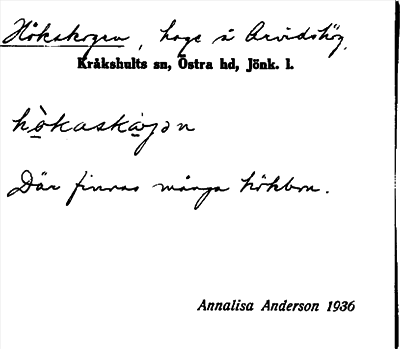 Hökaskogen, hage å Arvidshög,
Kråkshults sn, Östra hd, Jönk. l.
hökaskòγən
Där finnas många hökbon.
Annalisa Anderson 1936